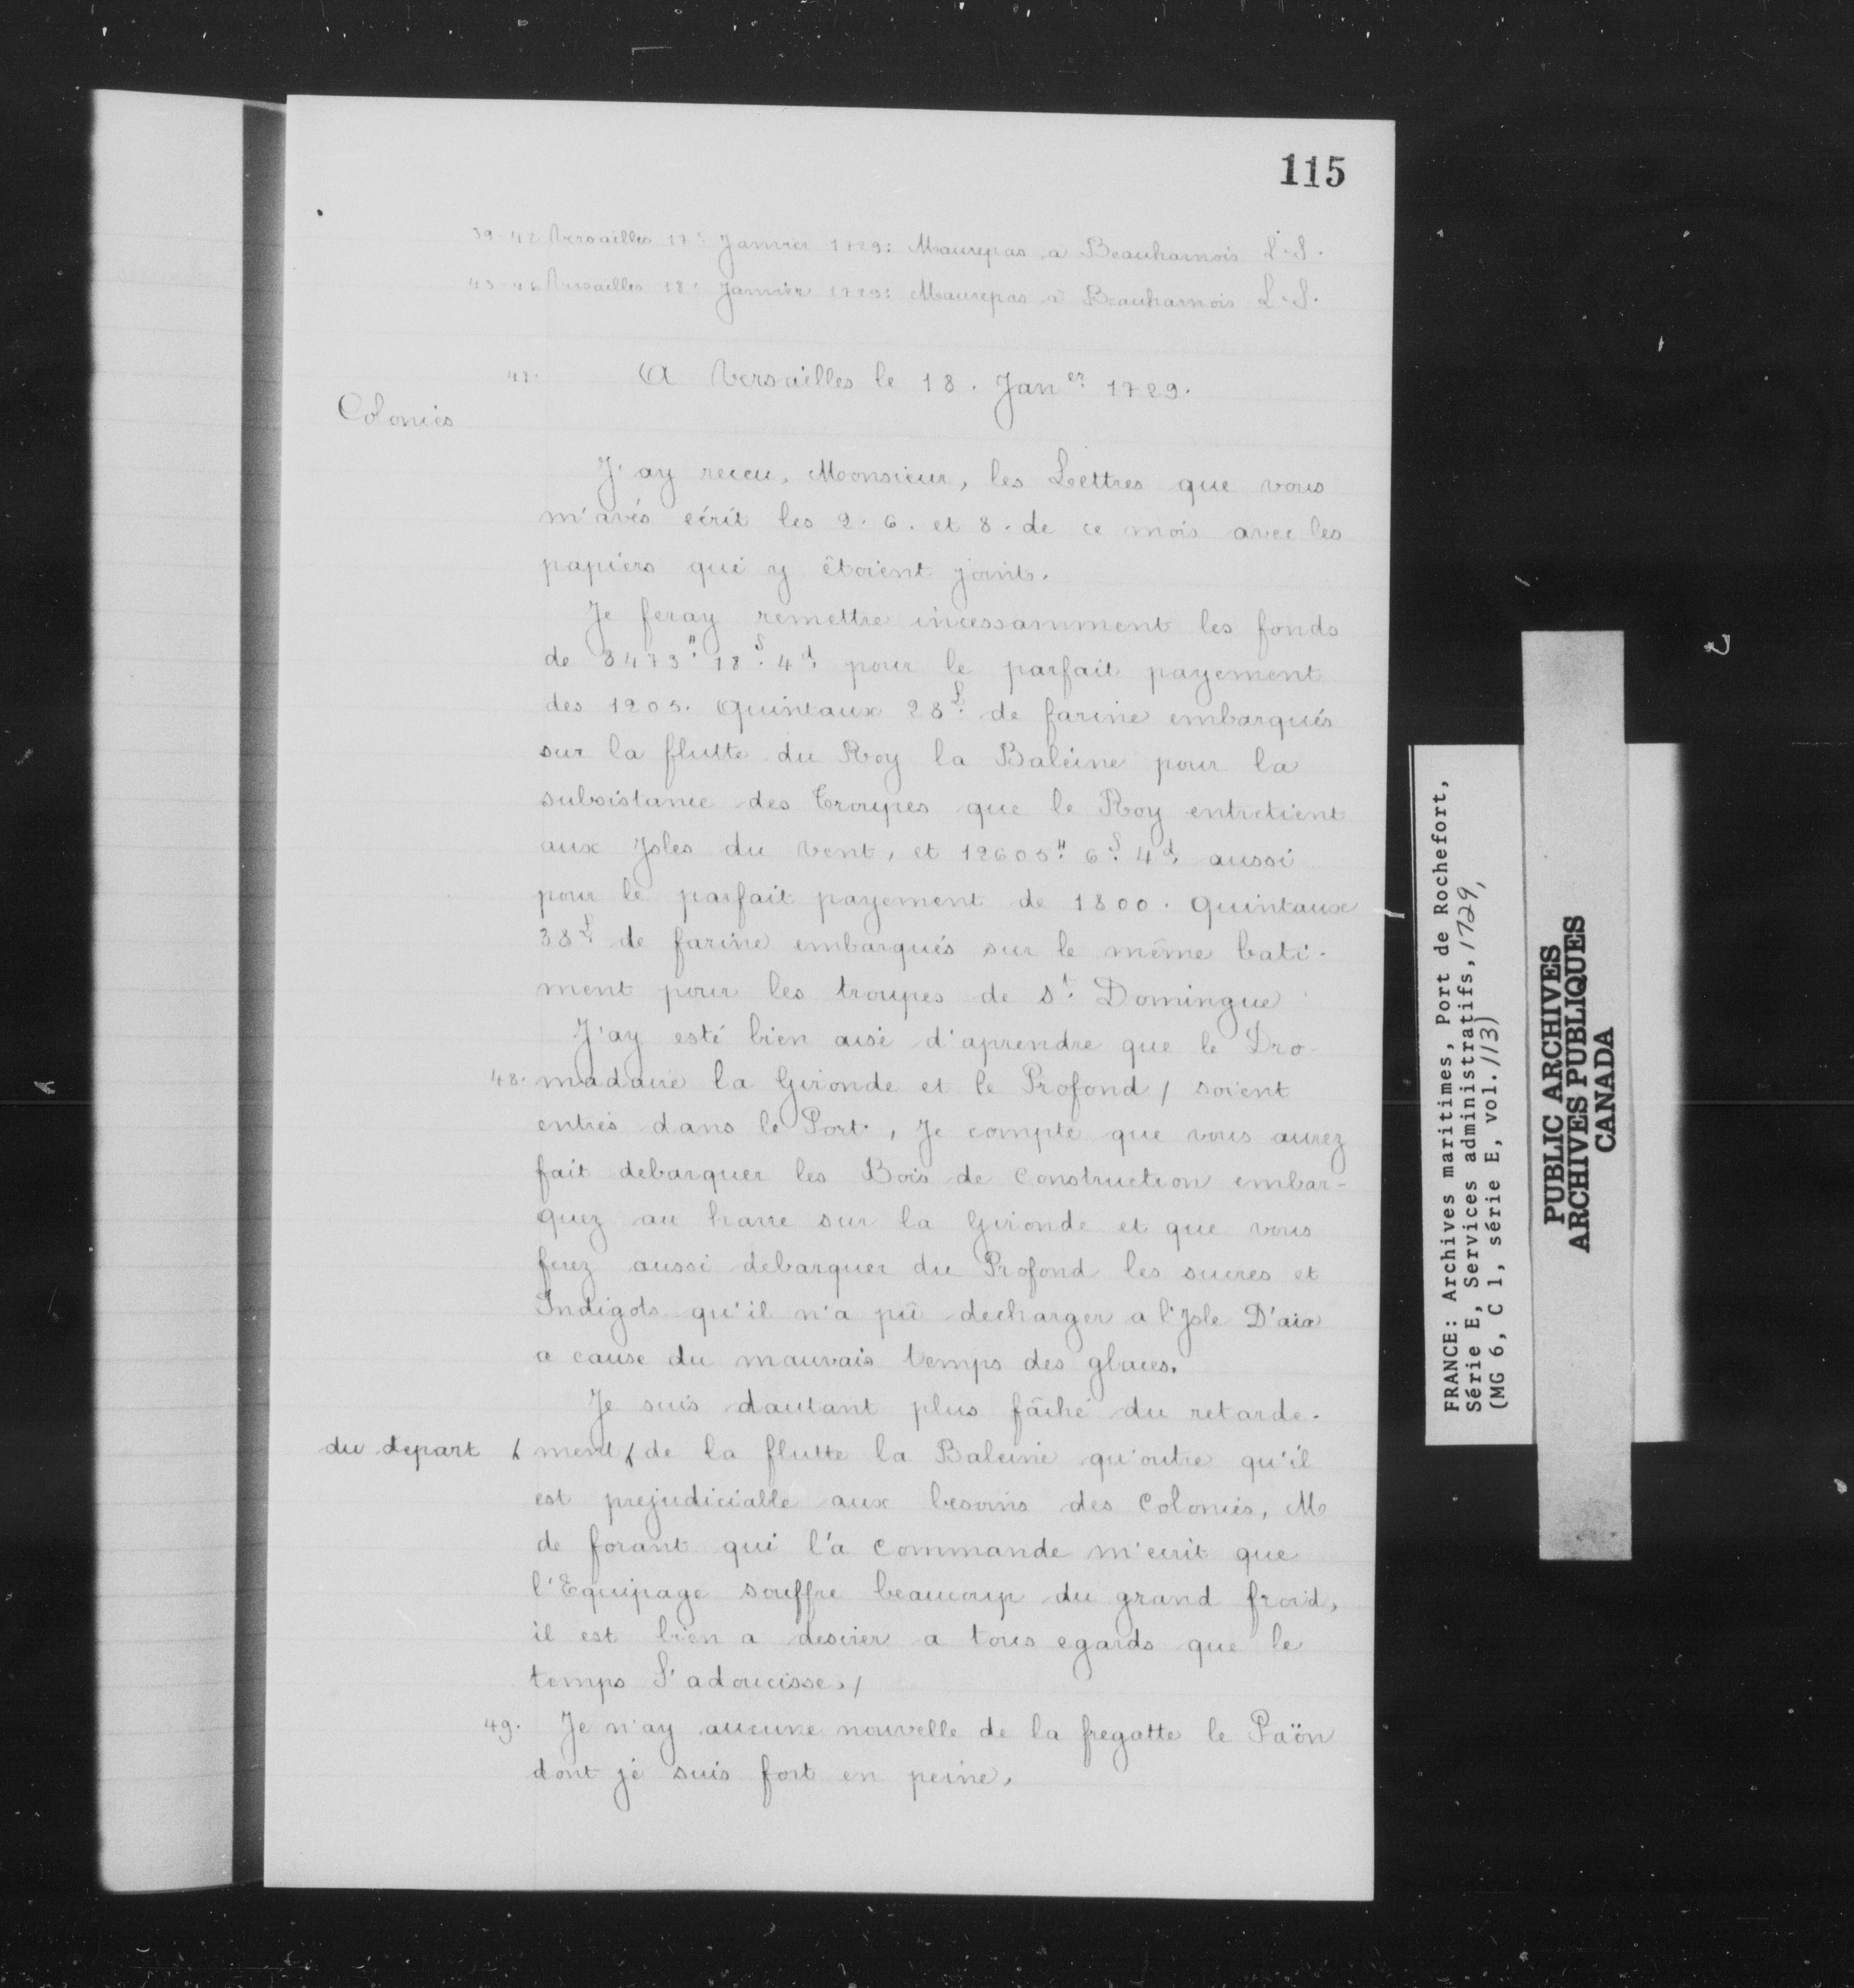 115
39-42 Versailles 17e Janvier 1729: Maurepas a Beauharnois L.S.
43-46 Versailles 18e Janvier 1729: Maurepas a Beauharnois L.S.
47. A Versailles le 18. Janer. 1729.
Colonies
J'ay receu, Monsieur, les Lettres que vous
m'avés écrit les 2. 6. et 8. de ce mois avec les
papiers qui y êtoient joints.
Je feray remettre incessamment les fonds
de 8473". 18s. 4d. pour le parfait payement
des 1205. Quintaux 28L. de farine embarqués
sur la flutte du Roy la Baleine pour la
subsistance des Troupes que le Roy entretient
aux Isles du Vent, et 12605". 6s. 4d. aussi
pour le parfait payement de 1800. Quintaux
38L. de farine embarqués sur le même bati-
ment pour les troupes de St. Domingue
J'ay esté bien aise d'aprendre que le Dro-
48. madaire la Gironde et le Profond / soient
entrés dans le Port, Je compte que vous aurez
fait debarquer les Bois de Construction embar-
quez au havre sur la Gironde et que vous
ferez aussi debarquer du Profond les sucres et
Indigots qu'il n'a pû decharger a l'Isle D'aix
a cause du mauvais temps des glaces.
Je suis dautant plus fâché du retarde-
du depart ( ment ( de la flutte la Baleine qu'outre qu'il
est prejudiciable aux besoins des Colonies, M
de forant qui l'a Commande m'ecrit que
l'Equipage souffre beaucoup du grand froid,
il est bien a desirer a tous egards que le
temps S'adoucisse. /
49. Je n'ay aucune nouvelle de la fregatte le Paön
dont je suis fort en peine,
FRANCE: Archives maritimes, Port de Rochefort,
Série E, Services administratifs, 1729,
(MG 6, C 1, série E, vol. 113)
PUBLIC ARCHIVES
ARCHIVES PUBLIQUES
CANADA